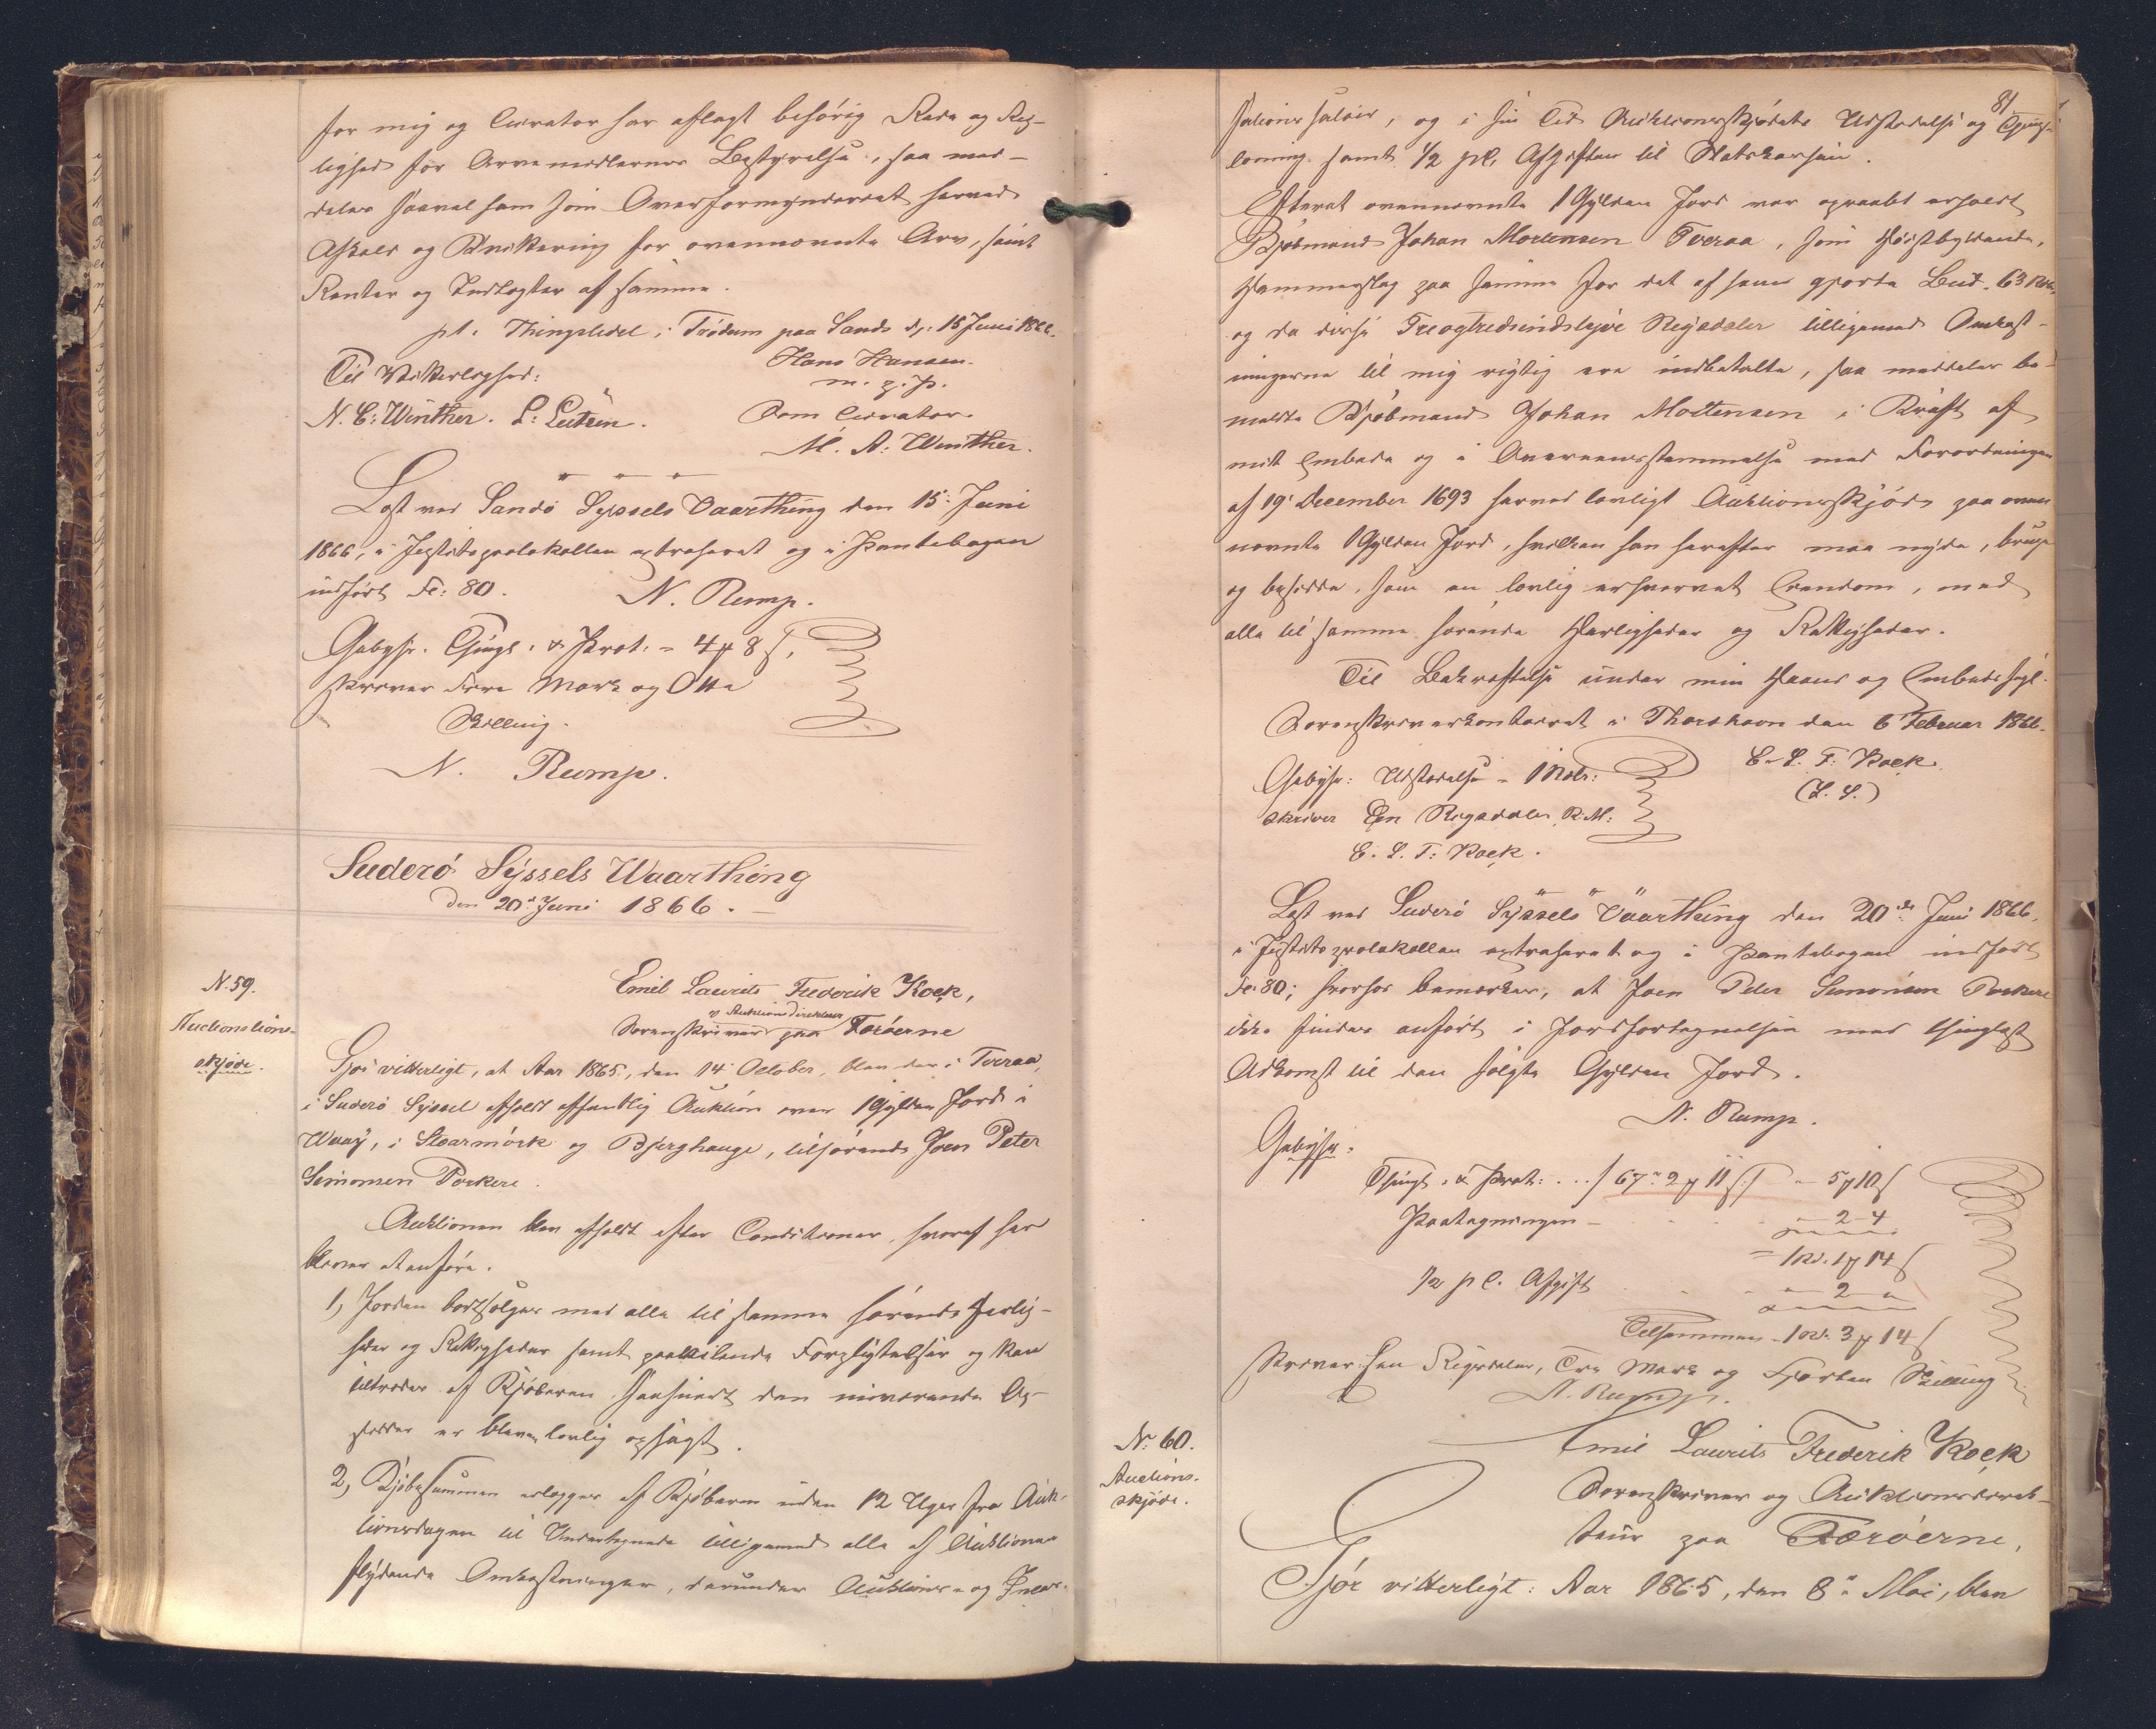 for mig og Curator har aflagt behörig Rede og Rig-
tighed for Arvemidlernes Bestyrelse, saa med-
deles saavel ham som Overformynderiet herved
Afkald og Kvittering for ovennævnte Arv, samt
Renter og Indtægter af samme.
pt. Thingstedet i Trödum paa Sandö d. 15 Juni 1866.
Hans Hansen.
m. p. P.
Til Vitterlighed:
N. C: Winther. L: Leitzen.
Som Curator.
M. A: Winther.
Læst ved Sandö Syssels Vaarthing den 15: Juni
1866, i Justitsprotokollen extraheret og i Pantebogen
indfört Fo: 80.
N. Rump.
Gebyhr. Thingl: & Prot: = 4 # 8 s,
skriver Fire Mark og Otte
Skilling.
N. Rump.
Suderö Syssels Waarthing
den 20de Juni 1866. —
N. 59.
Auctionslions-
skjöde.
Emil Laurits Frederik Kock,
og Auktionsdirekteur
Sorenskriver paa Færöerne
Gjör vitterligt, at Aar 1865, den 14 October, blev der i Tveraa,
i Suderö Syssel afholdt offentlig Auktion over 1 Gylden Jord i
Waag, i Stoarmörk og Bjerghauge, tilhörende Joen Peter
Simonsen Porkere.
Auktionen blev afholdt efter Conditioner, hvoraf her
bliver at anföre.
1, Jorden bortsælges med alle til samme hörende Herlig-
heder og Rettigheder samt paahvilende Forpligtelser og kan
tiltrædes af Kjöberen saasnart den nuværende Op-
sidder er bleven lovlig opsagt.
2, Kjöbesummen erlægges af Kjöberen inden 12 Uger fra Auk-
tionsdagen til Undertegnede tilligemed alle af Auktionen
flydende Omkostninger, derunder Auktions- og Incas-
81
sations salair, og i sin Tid Auktionsskjödets Udstedelse og Thing-
læsning samt 1/2 pCt. Afgiften til Statskassen.
Efterat ovennævnte 1 Gylden Jord var opraabt erholdt
Kjöbmand Johan Mortensen Tveraa, som Höistbydende,
Hammerslag paa samme for det af ham gjorte Bud 63 Rdlr,
og da disse Treogtredsindstyve Rigsdaler tilligemed Omkost-
ningerne til mig rigtig ere indbetalte, saa meddeles be-
meldte Kjöbmand Johan Mortensen i Kraft af
mit Embede og i Overeensstemmelse med Forordningen
af 19 December 1693 herved lovligt Auktionsskjöde paa oven
nævnte 1 Gylden Jord, hvilken han herefter maa nyde, bruge
og besidde, som en lovlig erhvervet Eiendom, med
alle til samme hörende Herligheder og Rettigheder.
Til Bekræftelse under min Haand og Embedssegl.
Sorenskriverkontoiret i Thorshavn den 6 Februar 1866.
E. L. F: Kock.
(L. S.)
Gebyhr: Udstedelse - 1 Rdlr:
skriver Een Rigsdaler R. M:
E. L. F: Kock.
Læst ved Suderö Syssels Vaarthing den 20de Juni 1866,
i Justitsprotokollen extraheret og i Pantebogen indfört
Fo: 80; hvorhos bemærkes, at Joen Peter Simonsen Porkere
ikke findes anfört i Jordfortegnelsen med thinglæst
Adkomst til den solgte Gylden Jord.
N. Rump.
Gebyhr:
Thingl. & Prot: ... / 67 " 2 # 11 s / - 5 # 10 s
Paategningen - - 2 - 4
= 1 rd. 1 # 14 s
1/2 pC. Afgift - 2 -
Tilsammen - 1 rd. 3 # 14 s
Skriver Een Rigsdaler, Tre Mark og Fjorten Skilling
N. Rump.
N: 60.
Auctions-
skjöde.
Emil Laurits Frederik Kock
Sorenskriver og Auktionsdirek-
teur paa Færöerne,
Gjör vitterligt: Aar 1865, den 8de Mai, blev